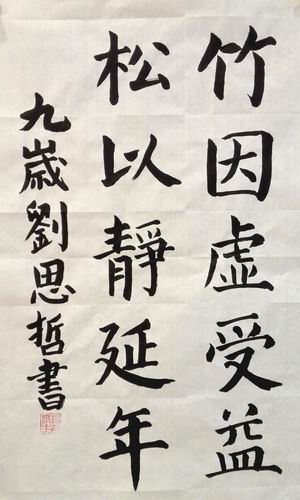 竹因虛受益
松以靜延年
九歲劉思哲書